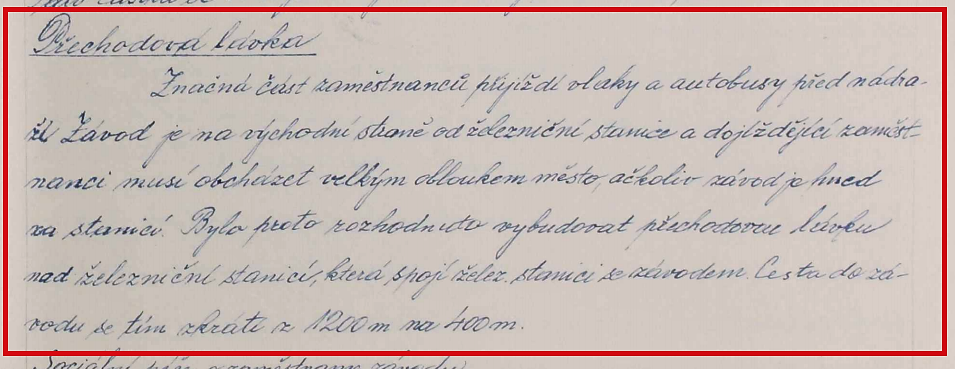 Přechodová lávka
Značná část zaměstnanců přijíždí vlaky a autobusy před nádra-
ží Závod je na východní straně od železniční stanice a dojíždějící zaměst-
nanci musí obcházet velkým obloukem město, ačkoliv závod je hned
za stanicí. Bylo proto rozhodnuto vybudovat přechodovou lávku
nad železniční stanicí, která spojí želez. stanici se závodem. Cesta do zá-
vodu se tím zkrátí z 1200 m na 400 m.
Sociální péče o zaměstnance závodu